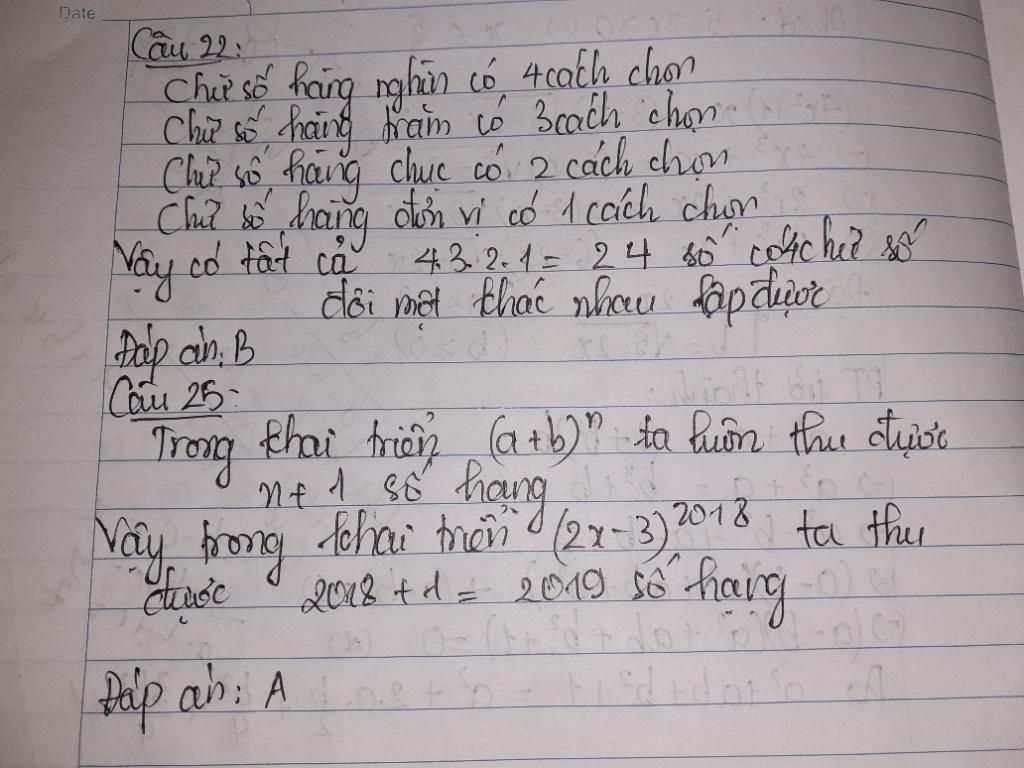 Date
Câu 22:
Chữ số hàng nghìn có 4 cách chọn
Chữ số hàng trăm có 3 cách chọn
Chữ số hàng chục có 2 cách chọn
Chữ số hàng đơn vị có 1 cách chọn
Vậy có tất cả 4.3.2.1 = 24 số có 4 chữ số
đôi một khác nhau lập được
Đáp án: B
Câu 25:
Trong khai triển (a+b)ⁿ ta luôn thu được
n + 1 số hạng
Vậy trong khai triển (2x-3)²⁰¹⁸ ta thu
được 2018 + 1 = 2019 số hạng
Đáp án: A